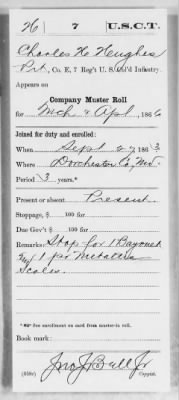 H | 7 | U.S.C.T.
Charles H. Hughes
Pvt., Co. E, 7 Reg't U. S. Col'd Infantry.
Appears on
Company Muster Roll
for Mch & Apl, 1866
Joined for duty and enrolled:
When Sept 27, 1863
Where Dorchester Co, Md.
Period 3 years.*
Present or absent Present
Stoppage, $ 100 for
Due Gov't $ 100 for
Remarks: Stop for 1 Bayonet
1 pr Metallic
Scales.
*See enrollment on card from muster-in roll.
Book mark:
Jno J Ball Jr
(358c) Copyist.